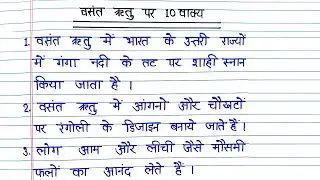 वसंत ऋतु पर 10 वाक्य
1. वसंत ऋतु में भारत के उत्तरी राज्यों
में गंगा नदी के तट पर शाही स्नान
किया जाता है।
2. वसंत ऋतु में आंगनो और चौखटों
पर रंगोली के डिजाइन बनाये जाते हैं।
3. लोग आम और लीची जैसे मौसमी
फलों का आनंद लेते हैं।